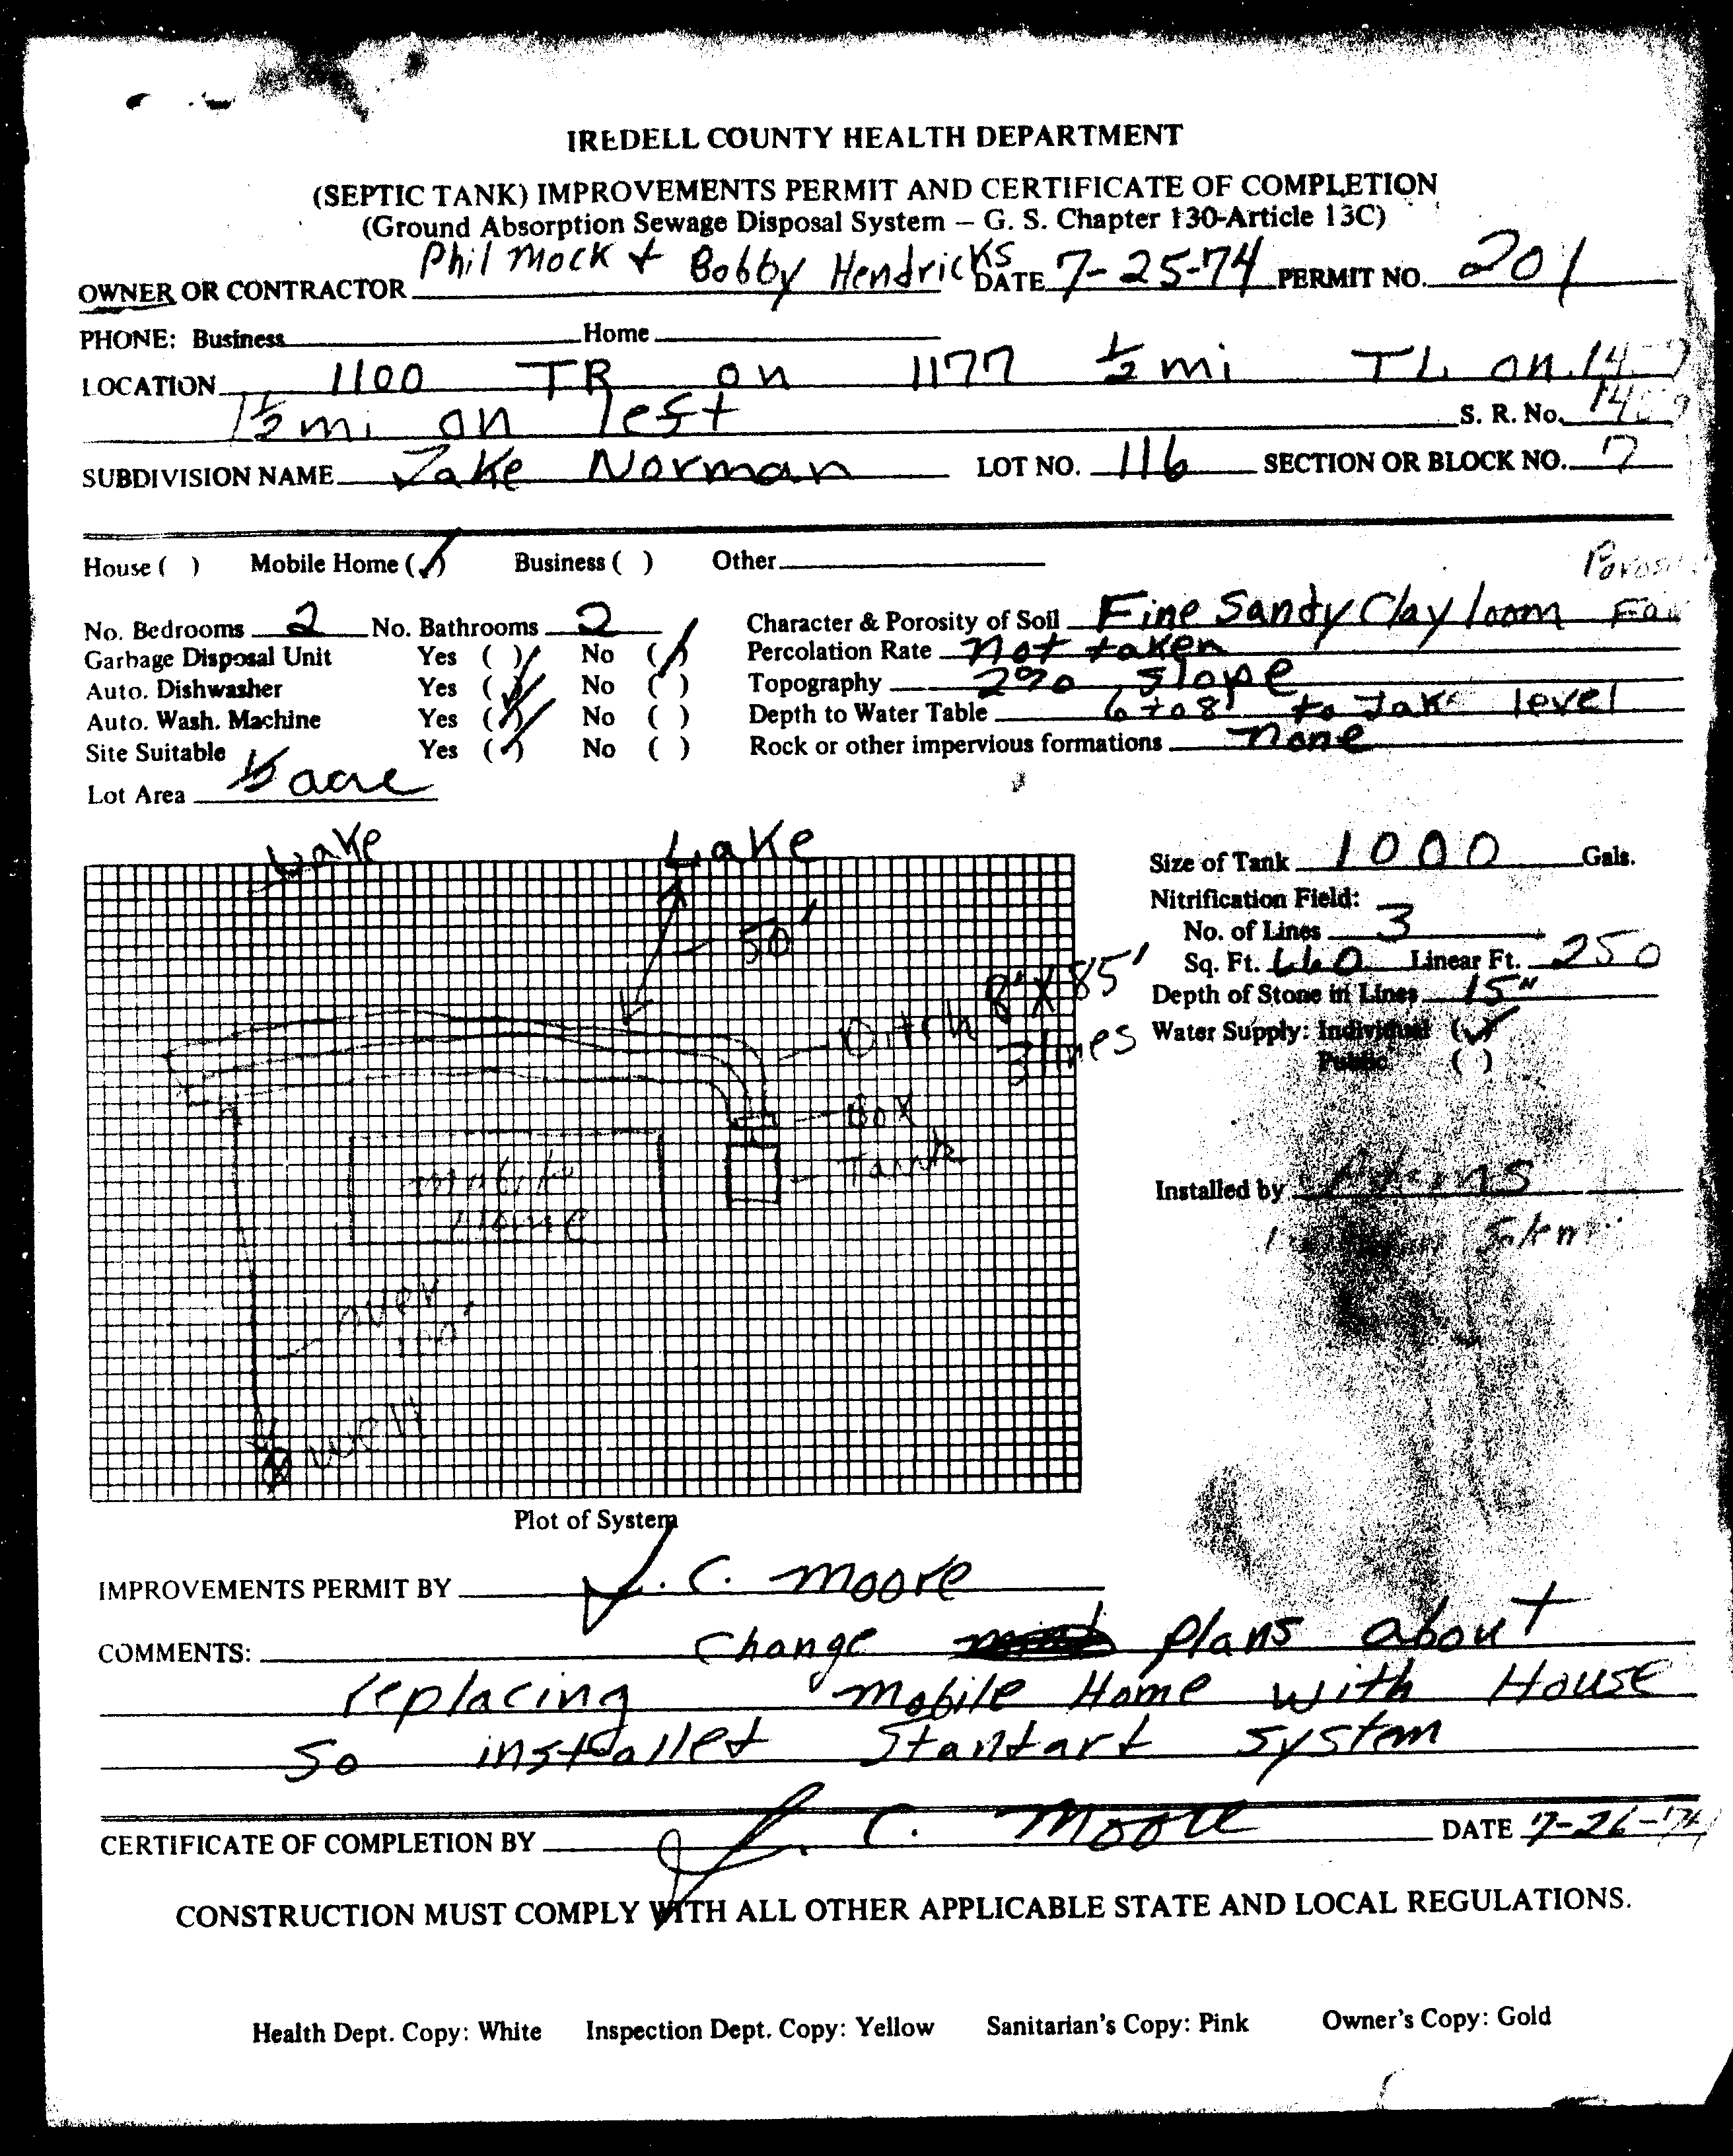 IREDELL COUNTY HEALTH DEPARTMENT
(SEPTIC TANK) IMPROVEMENTS PERMIT AND CERTIFICATE OF COMPLETION
(Ground Absorption Sewage Disposal System — G. S. Chapter 130-Article 13C)
OWNER OR CONTRACTOR Phil Mock + Bobby Hendricks DATE 7-25-74 PERMIT NO. 201
PHONE: Business Home
LOCATION 1100 TR on 1177 ½ mi TL on
1½ mi on left S. R. No.
SUBDIVISION NAME Lake Norman LOT NO. 116 SECTION OR BLOCK NO. 7
House ( ) Mobile Home (✓) Business ( ) Other
No. Bedrooms 2 No. Bathrooms 2 Character & Porosity of Soil Fine Sandy Clay loom
Garbage Disposal Unit Yes ( ) No (✓) Percolation Rate not taken
Auto. Dishwasher Yes (✓) No ( ) Topography 2% slope
Auto. Wash. Machine Yes (✓) No ( ) Depth to Water Table 6 to 8' to lake level
Site Suitable Yes (✓) No ( ) Rock or other impervious formations none
Lot Area ½ acre
Lake Lake
50'
8' X 85'
Ditch 3 lines
Box
Tank
mobile
Home
over
well
Size of Tank 1000 Gals.
Nitrification Field:
No. of Lines 3
Sq. Ft. 660 Linear Ft. 250
Depth of Stone in Lines 15"
Water Supply: Individual (✓)
Public ( )
Installed by
Plot of System
IMPROVEMENTS PERMIT BY J. C. Moore
COMMENTS: Change plans about
replacing mobile Home with House
so installed Standard system
CERTIFICATE OF COMPLETION BY J. C. Moore DATE 7-26-74
CONSTRUCTION MUST COMPLY WITH ALL OTHER APPLICABLE STATE AND LOCAL REGULATIONS.
Health Dept. Copy: White Inspection Dept. Copy: Yellow Sanitarian's Copy: Pink Owner's Copy: Gold